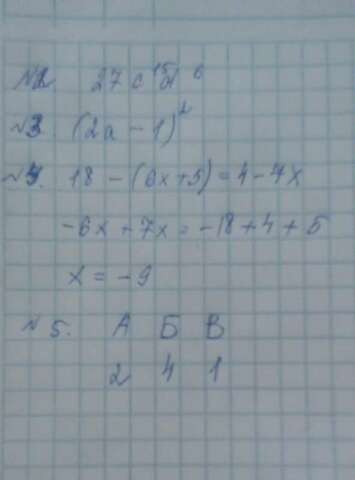 №2. 27 c¹⁵d⁶
№3. (2a - 1)²
№4. 18 - (6x+5) = 4 - 7x
-6x + 7x = -18 + 4 + 5
x = -9
№5. А Б В
2 4 1